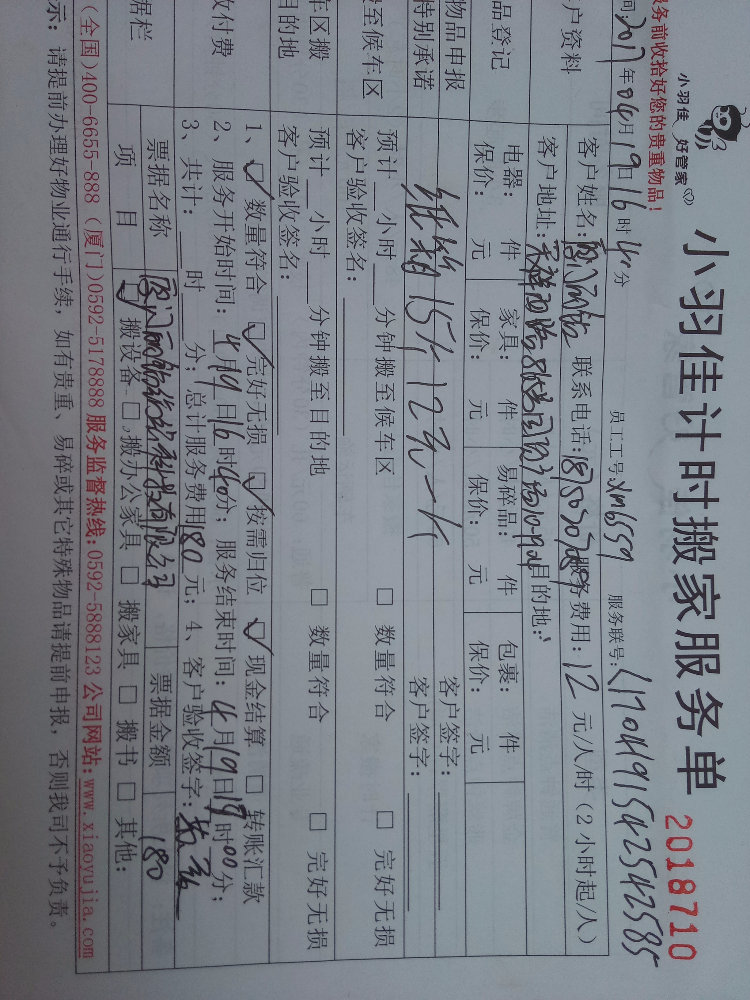 小羽佳 好管家
小羽佳计时搬家服务单
2018710
务前收拾好您的贵重物品！
2017年04月19日16时40分 员工工号:xm6559 服务联号:
户资料
客户姓名: 联系电话: 服务费用:12元/人/时(2小时起/人)
客户地址: 目的地:
品登记
电器: 件 家具: 件 易碎品: 件 包裹: 件
保价: 元 保价: 元 保价: 元 保价: 元
物品申报
客户签字:
特别承诺
纸箱15个12元一个
客户签字:
至候车区
预计 小时 分钟搬至候车区 □ 数量符合 □ 完好无损
客户验收签名:
车区搬
目的地
预计 小时 分钟搬至目的地 □ 数量符合 □ 完好无损
客户验收签名:
付费
1、☑ 数量符合 ☑ 完好无损 ☑ 按需归位 ☑ 现金结算 □ 转账汇款
2、服务开始时间:4月19日16时40分; 服务结束时间:4月19日19时00分;
3、共计: 时 分; 总计服务费用180元; 4、客户验收签字:
据栏
票据名称 票据金额 180
项 目 ☑ 搬设备 □ 搬办公家具 □ 搬家具 □ 搬书 □ 其他:
(全国)400-6655-888 (厦门)0592-5178888 服务监督热线:0592-5888123 公司网站:www.xiaoyujia.com
示: 请提前办理好物业通行手续，如有贵重、易碎或其它特殊物品请提前申报，否则我司不予负责。